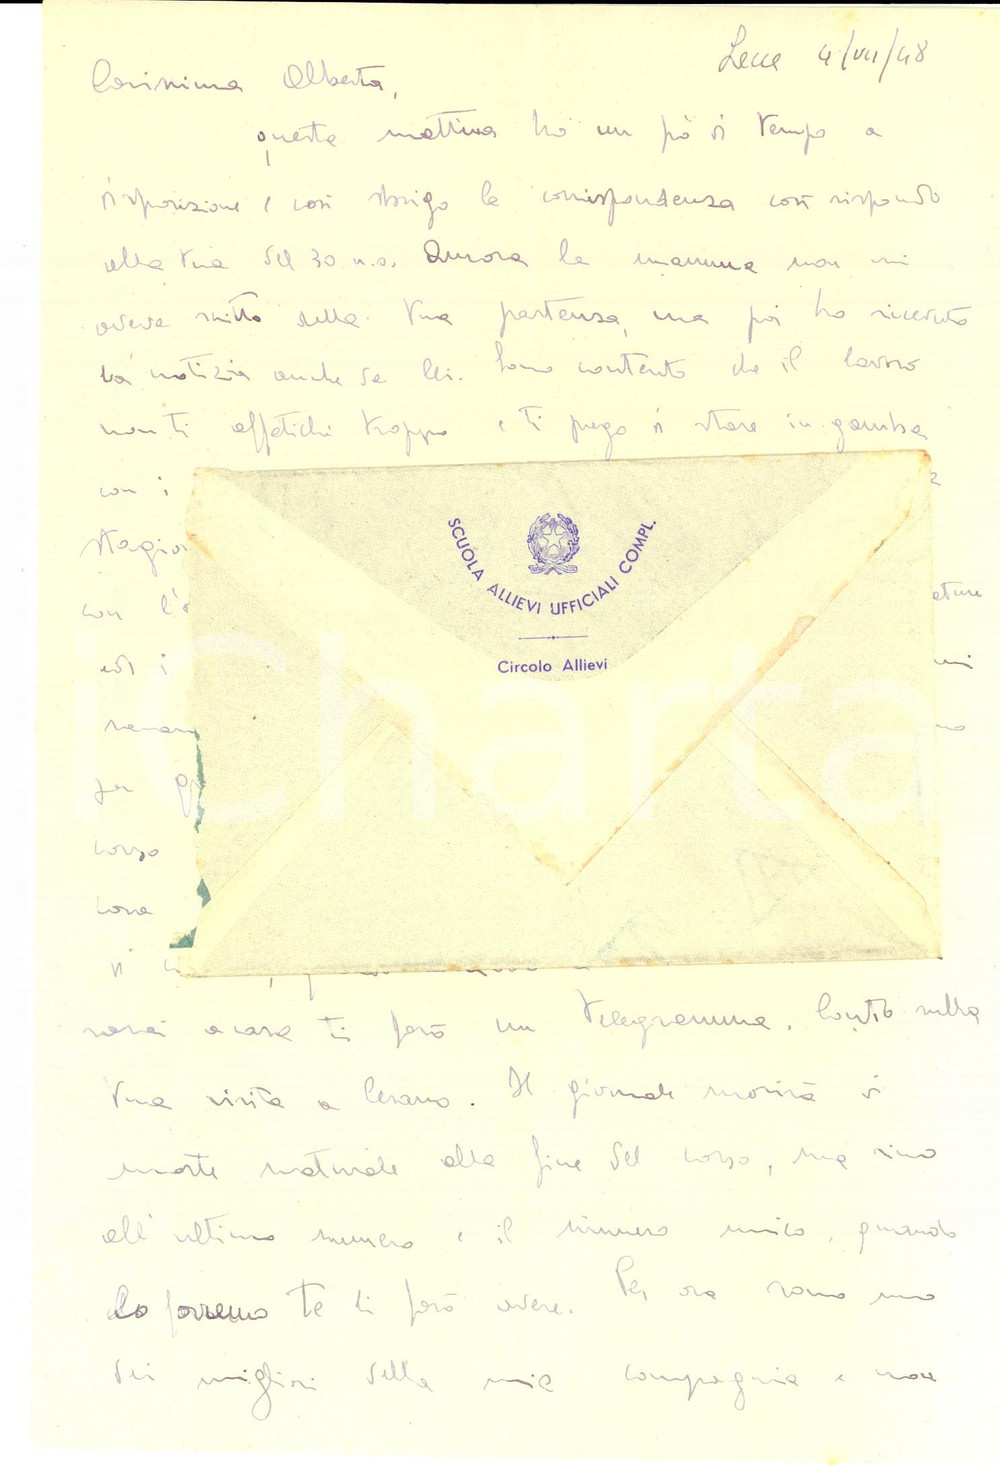 Lecce 4/VII/48
Carissima Alberta,
questa mattina ho un pò di tempo a
disposizione e così sbrigo la corrispondenza così rispondo
alla tua del 30 u.s. Ancora la mamma non mi
aveva scritto della tua partenza, ma poi ho ricevuto
la notizia anche da lei. Sono contento che il lavoro
non ti affatichi troppo e ti prego di stare in gamba
con i
stagion
con l'
ed i
per
corso
cosa
di
sarai a casa ti farò un telegramma. Conto sulla
tua visita a Cesano. Il giornale morirà di
morte naturale alla fine del corso, ma sino
all'ultimo numero e il numero unico, quando
lo faremo te li farò avere. Per ora sono uno
dei migliori della mia compagnia e non
SCUOLA ALLIEVI UFFICIALI COMPL.
Circolo Allievi
iCharta